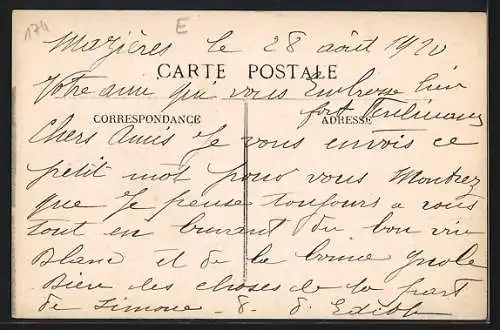 174
E
Mazières le 28 août 1920
CARTE POSTALE
Votre amie qui vous Embrasse bien
fort
CORRESPONDANCE
ADRESSE
Chers Amis Je vous envois ce
petit mot pour vous Montrez
que Je pense toujours a vous
tout en buvant du bon vin
Blanc et de la bonne gnole
Bien des choses de la part
de Simone - & d'Edith